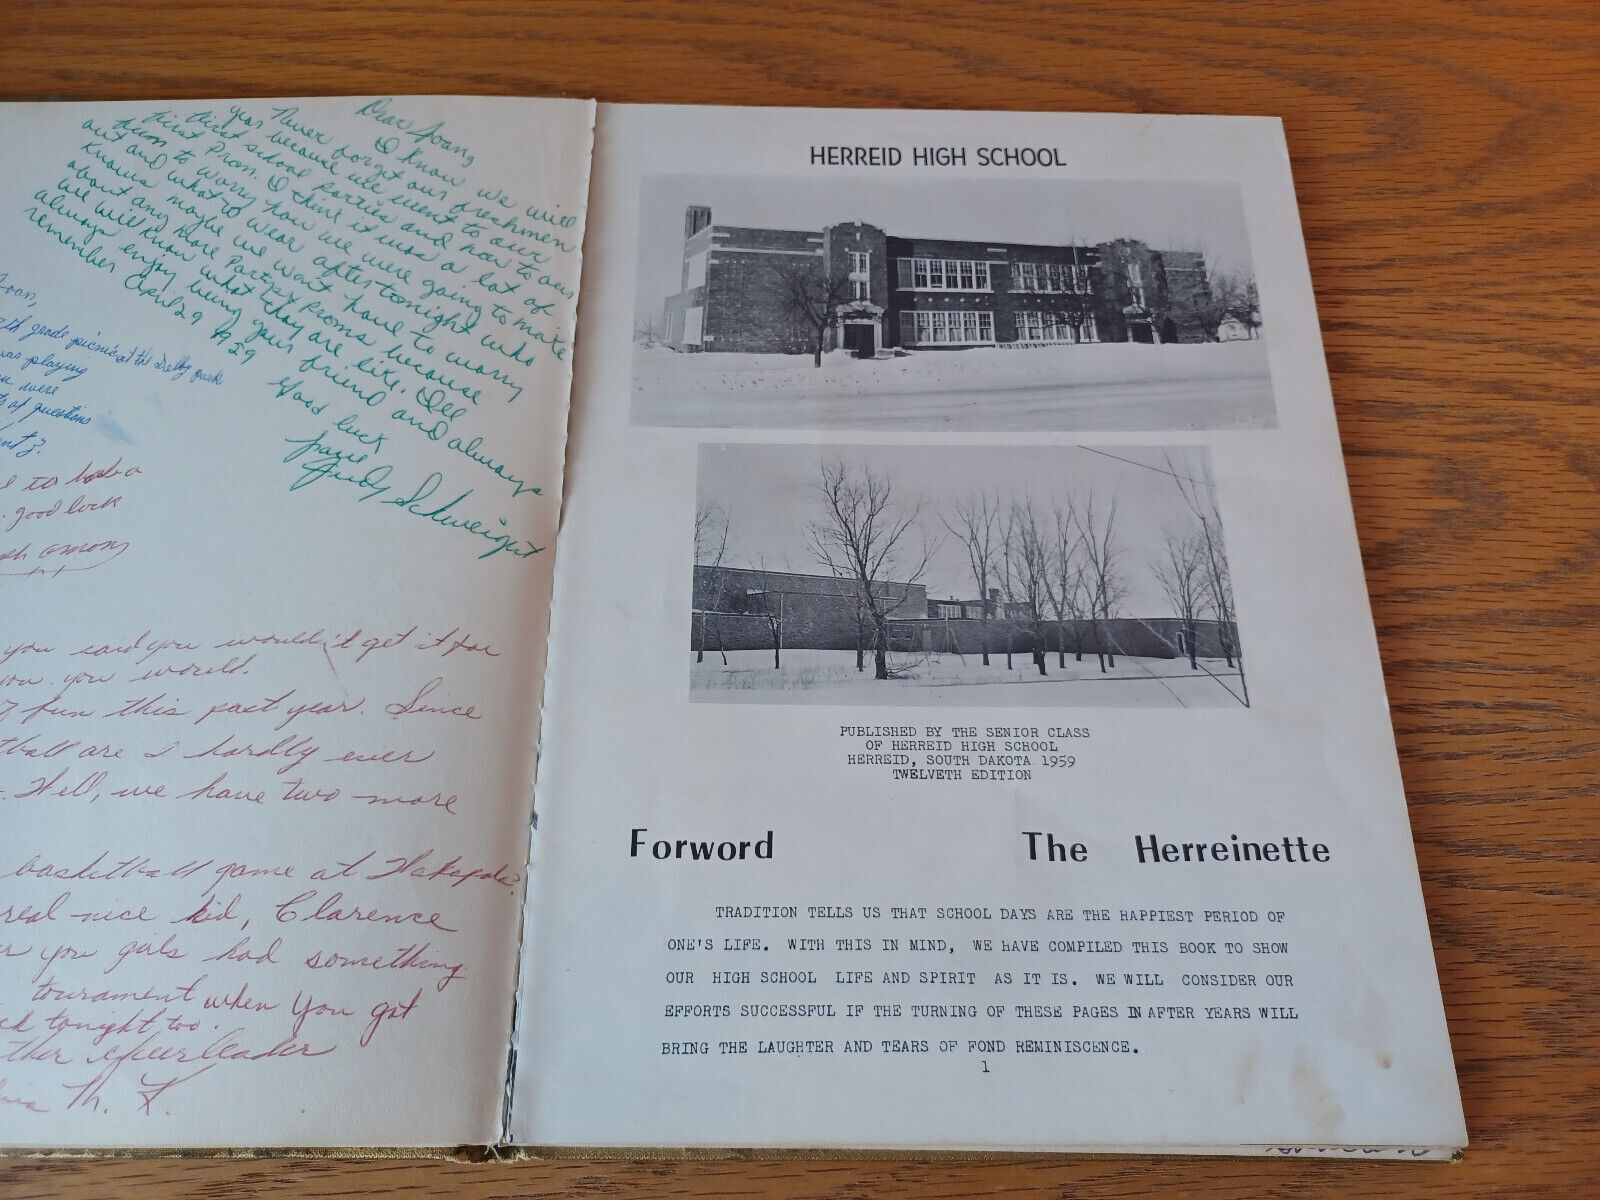 Dear Joang
I know we will
never forget our freshmen
year because we went to our
first school parties and now to our
first Prom. I think it was a lot of
fun to worry how we were going to make
out and what to wear after tonight who
knows maybe we wont have to worry
about any more Partys Proms because
we will know what they are like. Ill
always enjoy being your friend and always
remember April 29 1959
Good luck
Judy Schweigert
th grade picnic at the Selby park
was playing
were
of questions
to
good luck
you said you wouldn't get it for
you would.
fun this past year. Since
are I hardly ever
Well, we have two more
basketball game at
real nice kid, Clarence
you girls had something
tournament when you got
tonight too.
cheerleader
Th. F.
HERREID HIGH SCHOOL
PUBLISHED BY THE SENIOR CLASS
OF HERREID HIGH SCHOOL
HERREID, SOUTH DAKOTA 1959
TWELVETH EDITION
Forword The Herreinette
TRADITION TELLS US THAT SCHOOL DAYS ARE THE HAPPIEST PERIOD OF
ONE'S LIFE. WITH THIS IN MIND, WE HAVE COMPILED THIS BOOK TO SHOW
OUR HIGH SCHOOL LIFE AND SPIRIT AS IT IS. WE WILL CONSIDER OUR
EFFORTS SUCCESSFUL IF THE TURNING OF THESE PAGES IN AFTER YEARS WILL
BRING THE LAUGHTER AND TEARS OF FOND REMINISCENCE.
1